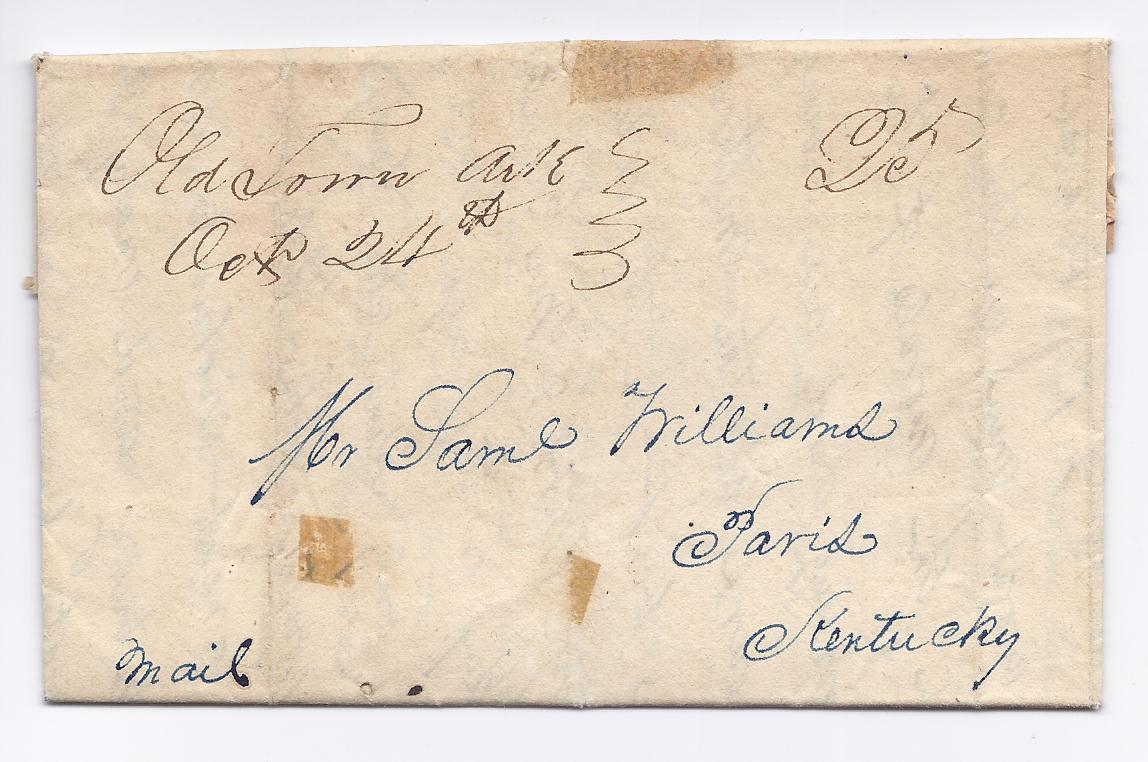 Old Town Ark 25
Oct 24th
Mr Saml Williams
Paris
Kentucky
Mail